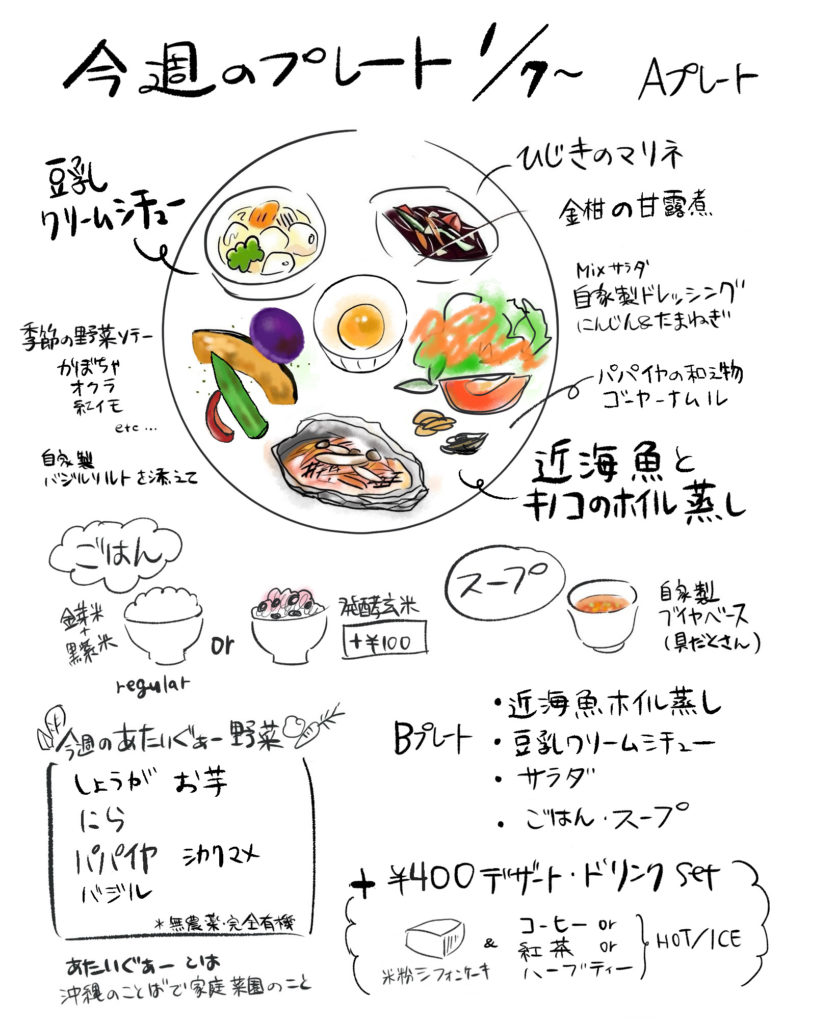 今週のプレート 1/7〜
Aプレート
豆乳
クリームシチュー
ひじきのマリネ
金柑の甘露煮
Mixサラダ
自家製ドレッシング
にんじん&たまねぎ
季節の野菜ソテー
かぼちゃ
オクラ
紅イモ
etc...
パパイヤの和え物
ゴーヤーナムル
自家製
バジルソルトを添えて
近海魚と
キノコのホイル蒸し
ごはん
金芽米
+
黒紫米
regular
or
発酵玄米
+¥100
スープ
自家製
ブイヤベース
(具だくさん)
今週のあたいぐゎー野菜
しょうが お芋
にら
パパイヤ シカクマメ
バジル
*無農薬・完全有機
あたいぐゎーとは
沖縄のことばで家庭菜園のこと
Bプレート
・近海魚ホイル蒸し
・豆乳クリームシチュー
・サラダ
・ごはん・スープ
+ ¥400 デザート・ドリンク set
米粉シフォンケーキ
&
コーヒー or
紅茶 or
ハーブティー
HOT/ICE